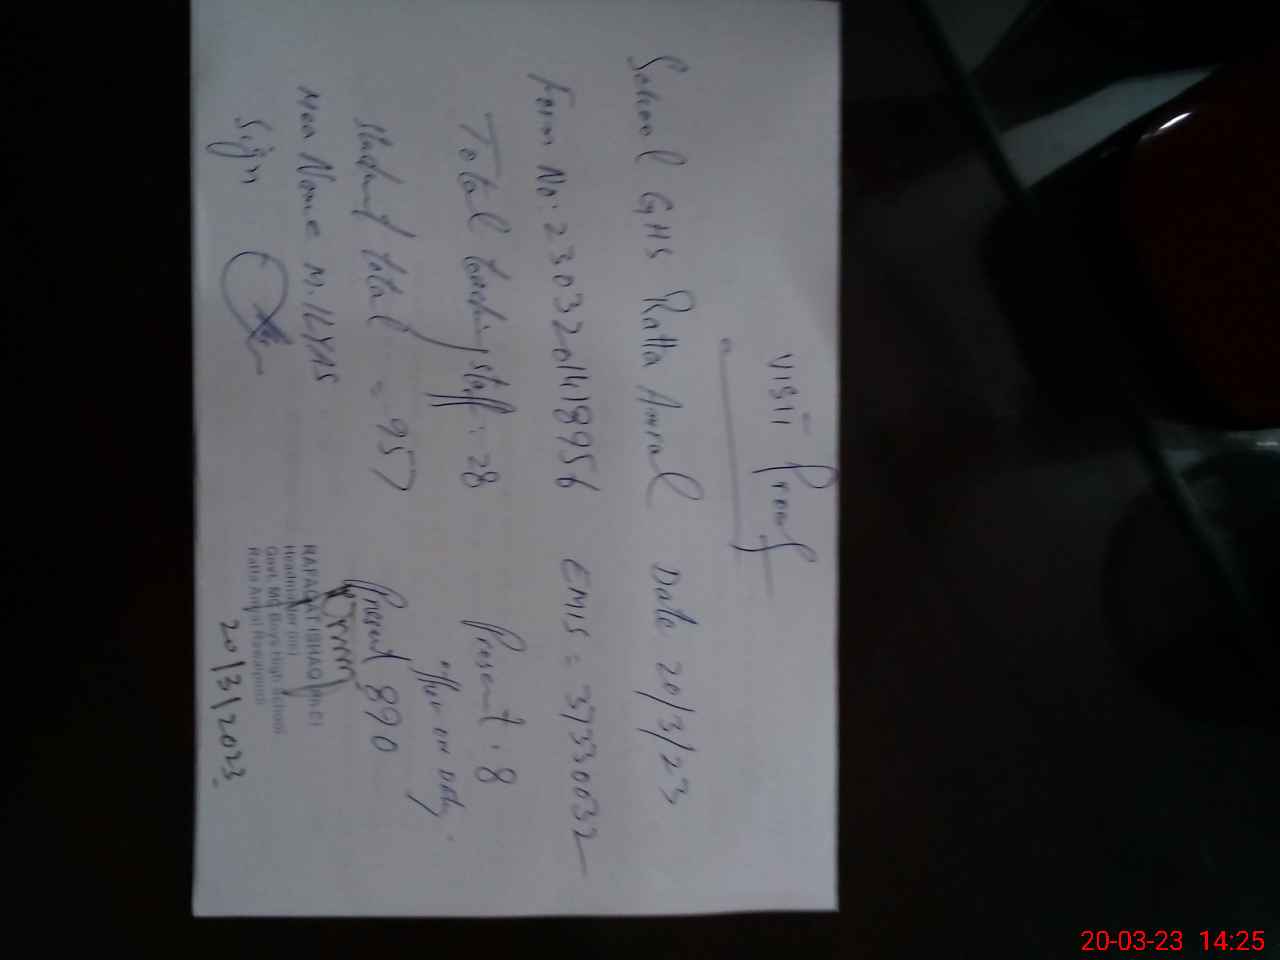 VISIT Proof
School GHS Ratta Amral Date 20/3/23
Form No: 2303201418956 EMIS = 37330032
Total teaching staff: 28 Present: 8
other on duty.
Student total = 957 Present 890
Mea Name M. ILYAS
Sign
Headmaster
Govt. MC Boys High School
Ratta Amral Rawalpindi
20/3/2023
20-03-23 14:25